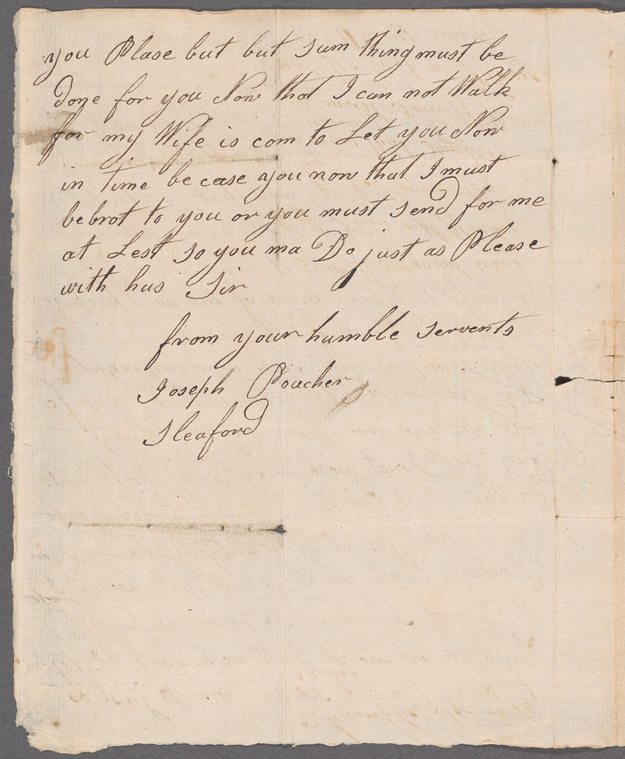 you Plase but but sum thing must be
done for you Now that I can not Walk
for my Wife is com to Let you Now
in time be case you now that I must
be brot to you or you must send for me
at Lest so you ma Do just as Please
with hus Sir
from your humble servents
Joseph Poucher
Sleaford